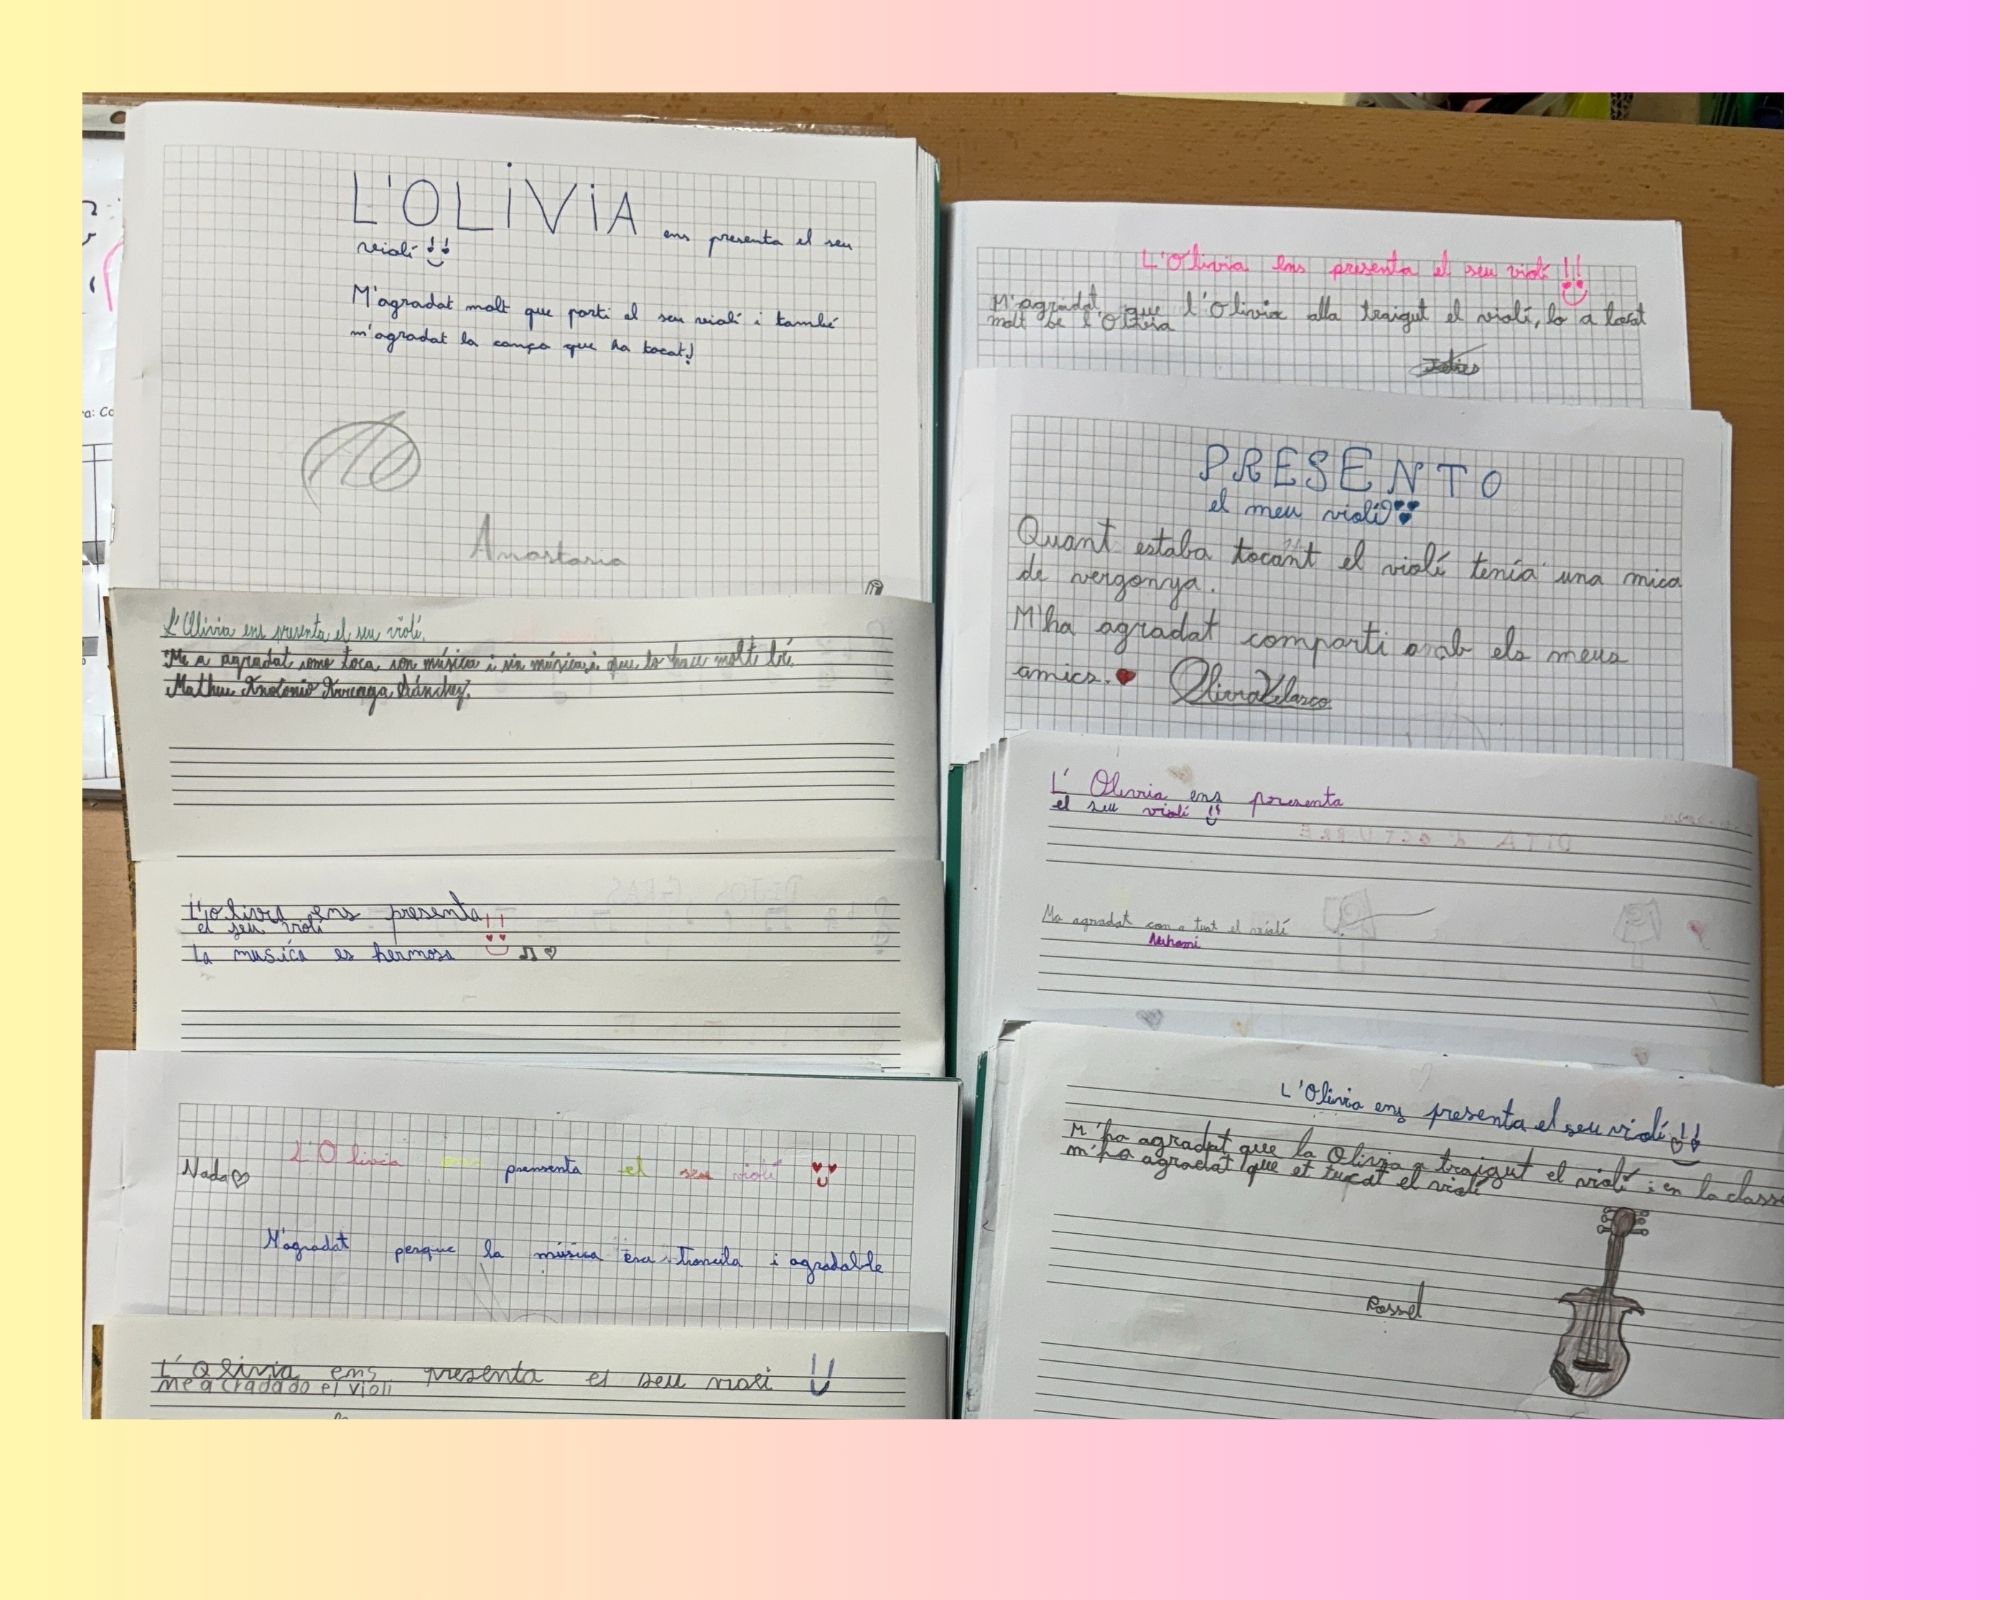 L'OLIVIA ens presenta el seu
violí !!
M'agradat molt que porti el seu violí i també
m'agradat la canço que ha tocat!
Anastasia
L'Olivia ens presenta el seu violí.
Me a agradat como toca son música i sin música i que lo hace molt bé.
Matheu Antonio Arreaga Sánchez.
L'olivia ens presenta !!
el seu violi
la musíca es hermosa
Nada
L'Olivia ens prensenta el seu violí
M'agradat perque la música era trancila i agradable
L'Olivia ens presenta el seu violi !!
me a cradado el violi
L'Olivia ens presenta el seu violí !!
M'agradat que l'Olivia alla traigut el violí, lo a tocat
molt bé l'Olivia
PRESENTO
el meu violí
Quant estaba tocant el violí tenía una mica
de vergonya.
M'ha agradat comparti amb els meus
amics.
Olivia Velasco
L' Olivia ens presenta
el seu violí !!
DITA d'OCTUBRE
Ma agradat com a tuat el violí
Nuhami
L'Olivia ens presenta el seu violí !!
M'ha agradat que la Olivia a traigut el violí i en la classe
m'ha agradat que et tucat el violí
Rossel